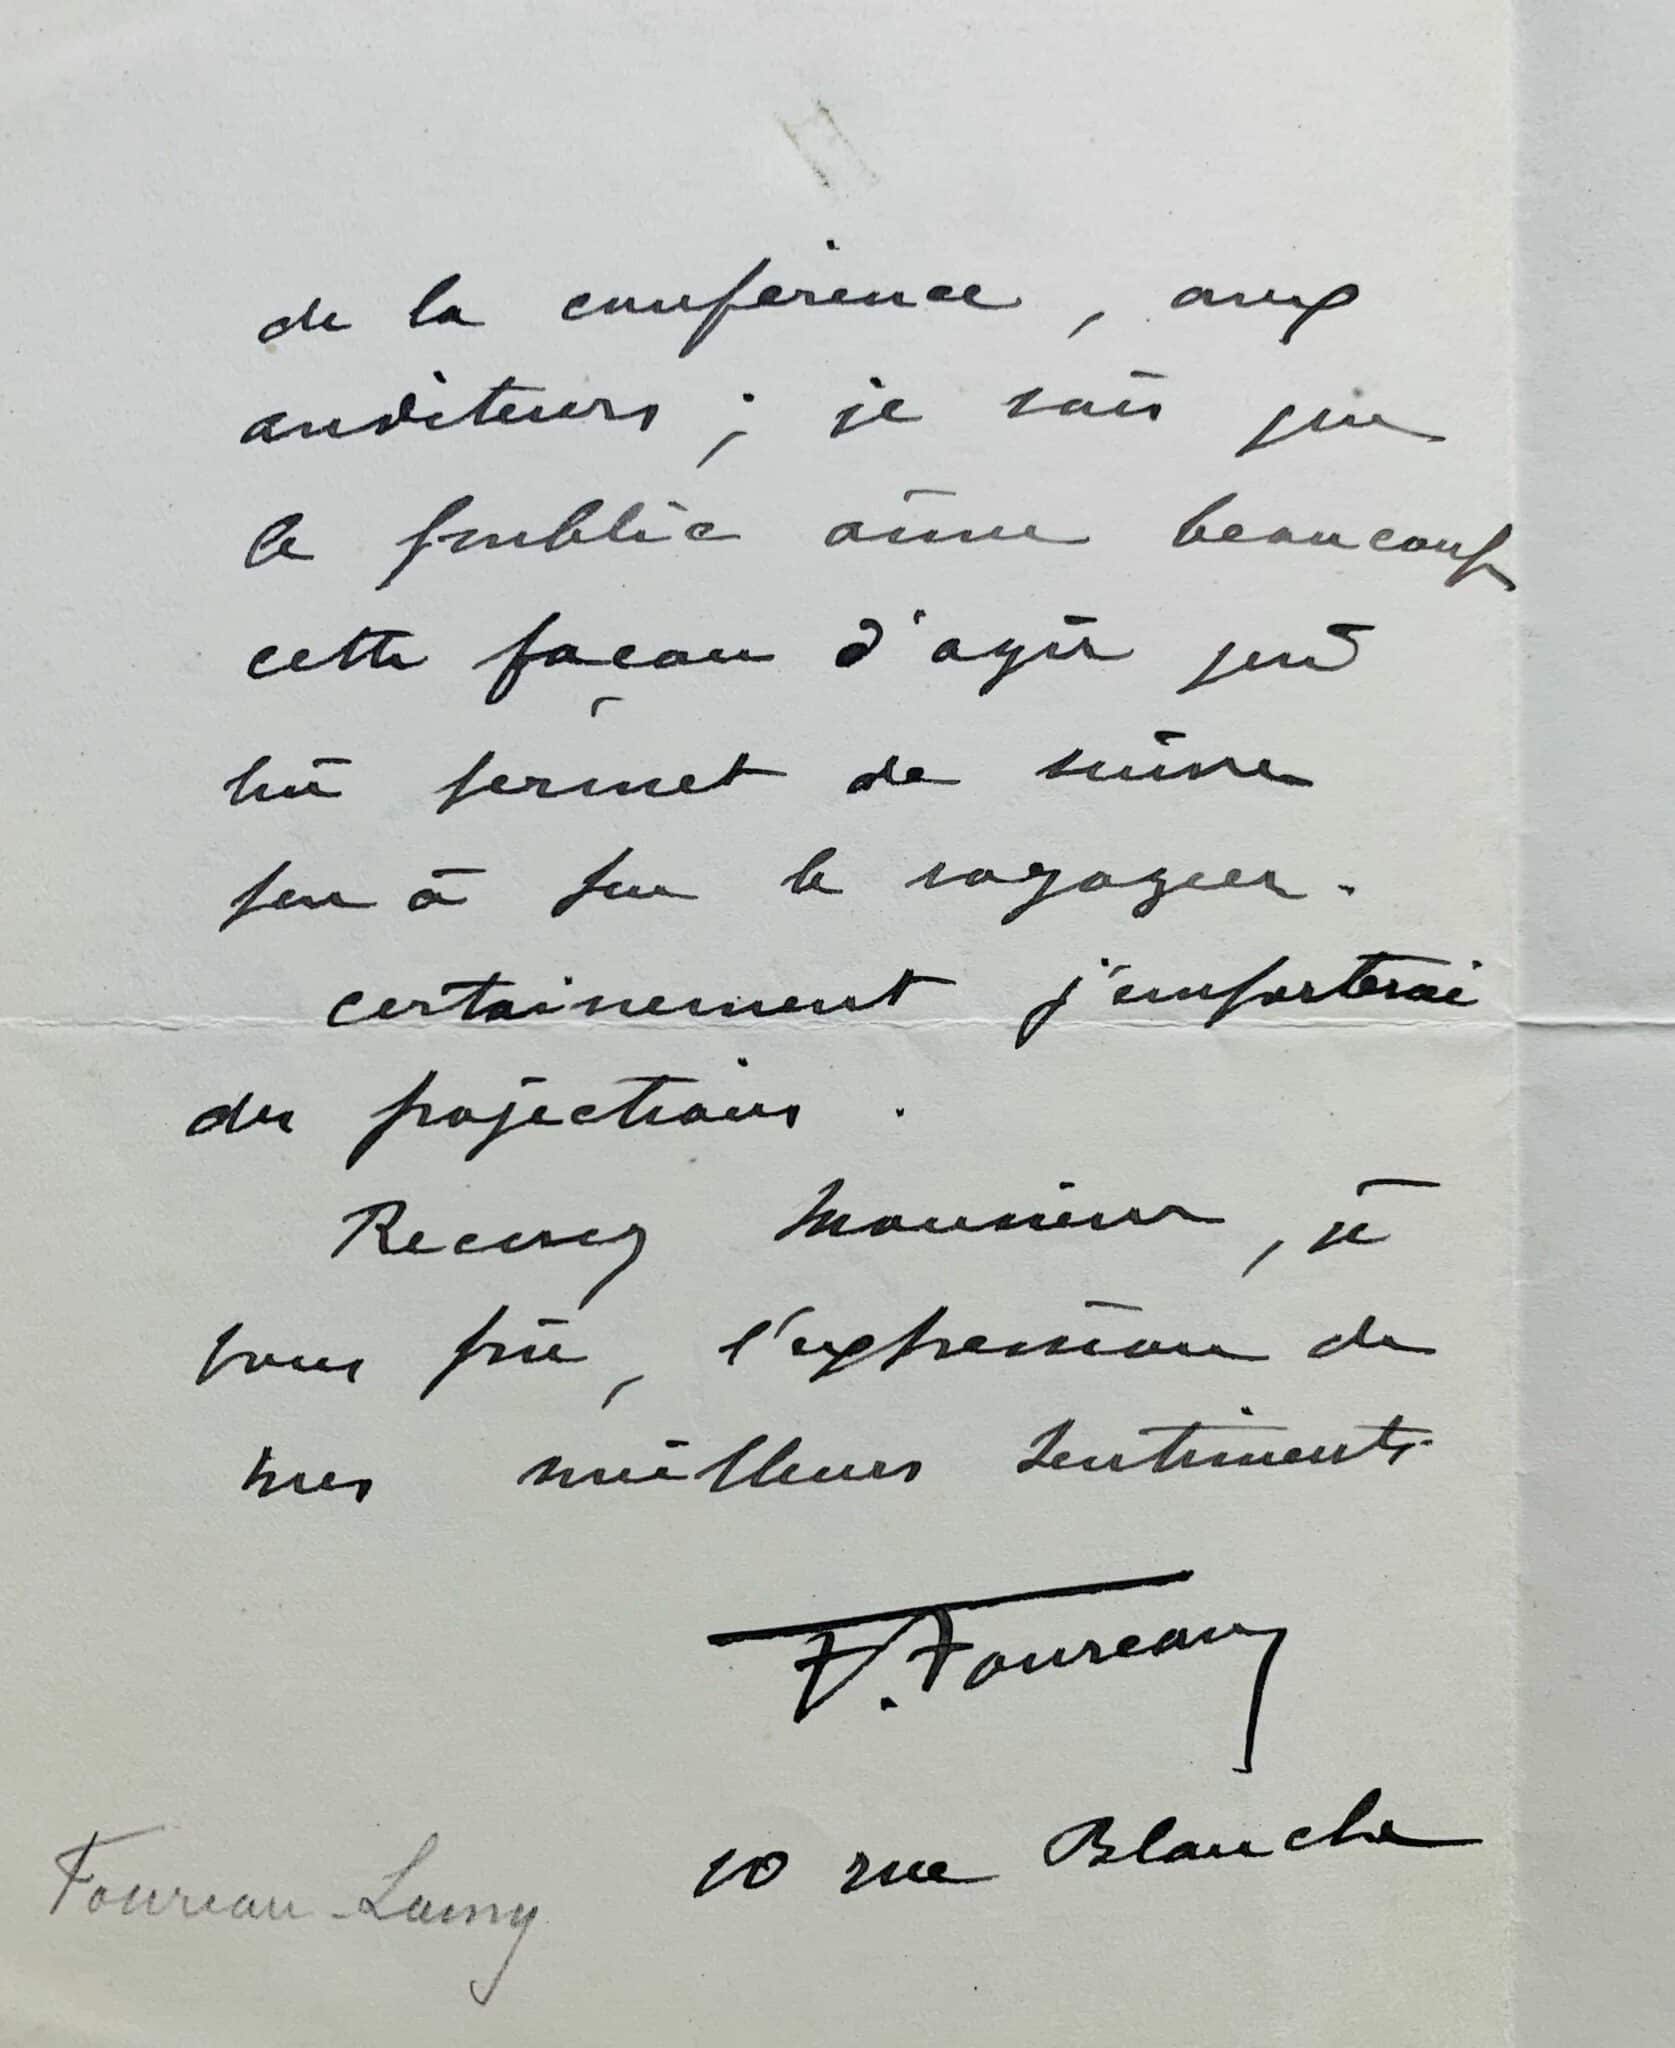 de la conférence, aux
auditeurs ; je sais que
le public aime beaucoup
cette façon d'agir qui
lui permet de suivre
peu à peu le voyageur.
certainement j'emporterai
des projections.
Recevez Monsieur, je
vous prie, l'expression de
mes meilleurs sentiments
F. Foureau
10 rue Blanche
Foureau-Lamy